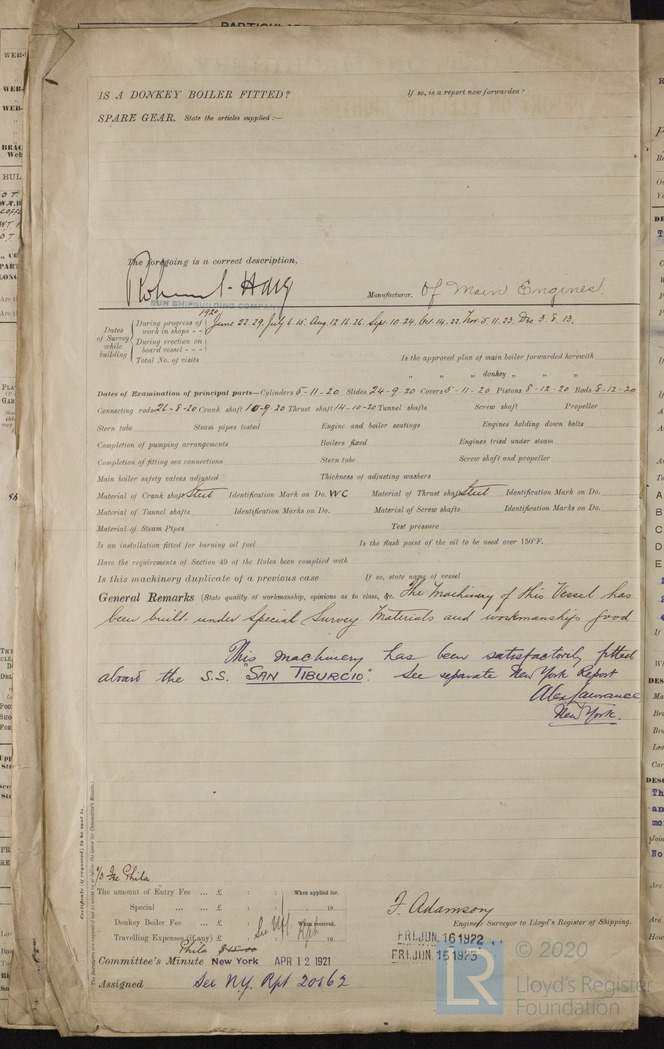 IS A DONKEY BOILER FITTED? If so, is a report now forwarded?
SPARE GEAR. State the articles supplied :—
The foregoing is a correct description,
Haig
SUN SHIPBUILDING COMPANY
Manufacturer. Of Main Engines
1920
Dates of Survey while building
During progress of work in shops - - June 22. 29. July 6. 15. Aug. 12. 16. 26. Sept. 10. 24. Oct. 14. 22. Nov. 5. 11. 23. Dec 3. 8. 13.
During erection on board vessel - - -
Total No. of visits
Is the approved plan of main boiler forwarded herewith
" " " donkey " " "
Dates of Examination of principal parts—Cylinders 5-11-20 Slides 24-9-20 Covers 5-11-20 Pistons 8-12-20 Rods 8-12-20
Connecting rods 26-8-20 Crank shaft 10-9-20 Thrust shaft 14-10-20 Tunnel shafts Screw shaft Propeller
Stern tube Steam pipes tested Engine and boiler seatings Engines holding down bolts
Completion of pumping arrangements Boilers fixed Engines tried under steam
Completion of fitting sea connections Stern tube Screw shaft and propeller
Main boiler safety valves adjusted Thickness of adjusting washers
Material of Crank shaft Steel Identification Mark on Do. WC Material of Thrust shaft Steel Identification Mark on Do.
Material of Tunnel shafts Identification Marks on Do. Material of Screw shafts Identification Marks on Do.
Material of Steam Pipes Test pressure
Is an installation fitted for burning oil fuel Is the flash point of the oil to be used over 150°F.
Have the requirements of Section 49 of the Rules been complied with
Is this machinery duplicate of a previous case If so, state name of vessel
General Remarks (State quality of workmanship, opinions as to class, &c. The Machinery of this Vessel has
been built under Special Survey Materials and workmanship good
This machinery has been satisfactorily fitted
aboard the S.S. "SAN TIBURCIO". See separate New York Report
Alex Lawrance
New York.
Certificate (if required) to be sent to
The Surveyors are requested not to write on or below the space for Committee's Minute.
Phila
The amount of Entry Fee ... £ : : When applied for,
Special ... £ : : 19
Donkey Boiler Fee ... £ : : When received,
Travelling Expenses (if any) £ : : 19
Phila
F. Adamson
Engineer Surveyor to Lloyd's Register of Shipping.
FRI. JUN. 16 1922
FRI. JUN. 15 1923
Committee's Minute New York APR 12 1921
Assigned See N.Y. Rpt 20162
© 2020
LR
Lloyd's Register
Foundation